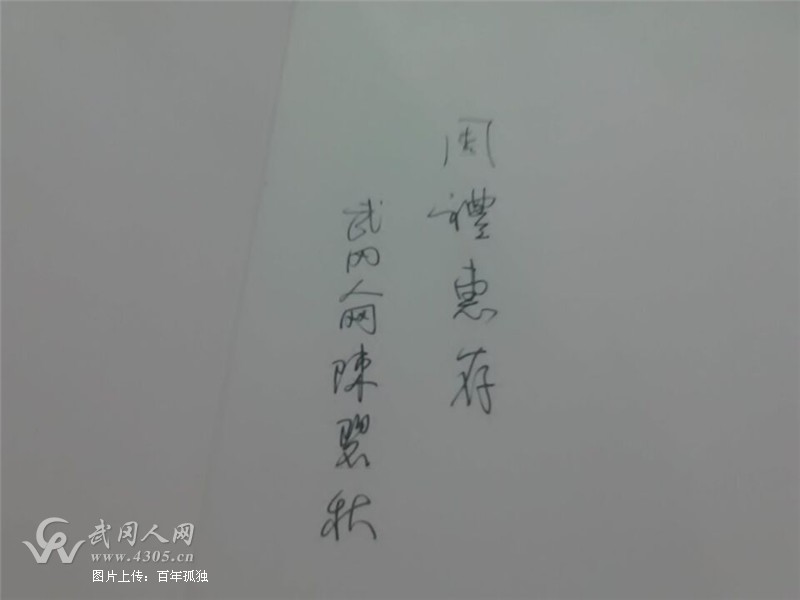 周禮惠存
武冈人网陳碧秋
武冈人网
www.4305.cn
图片上传：百年孤独